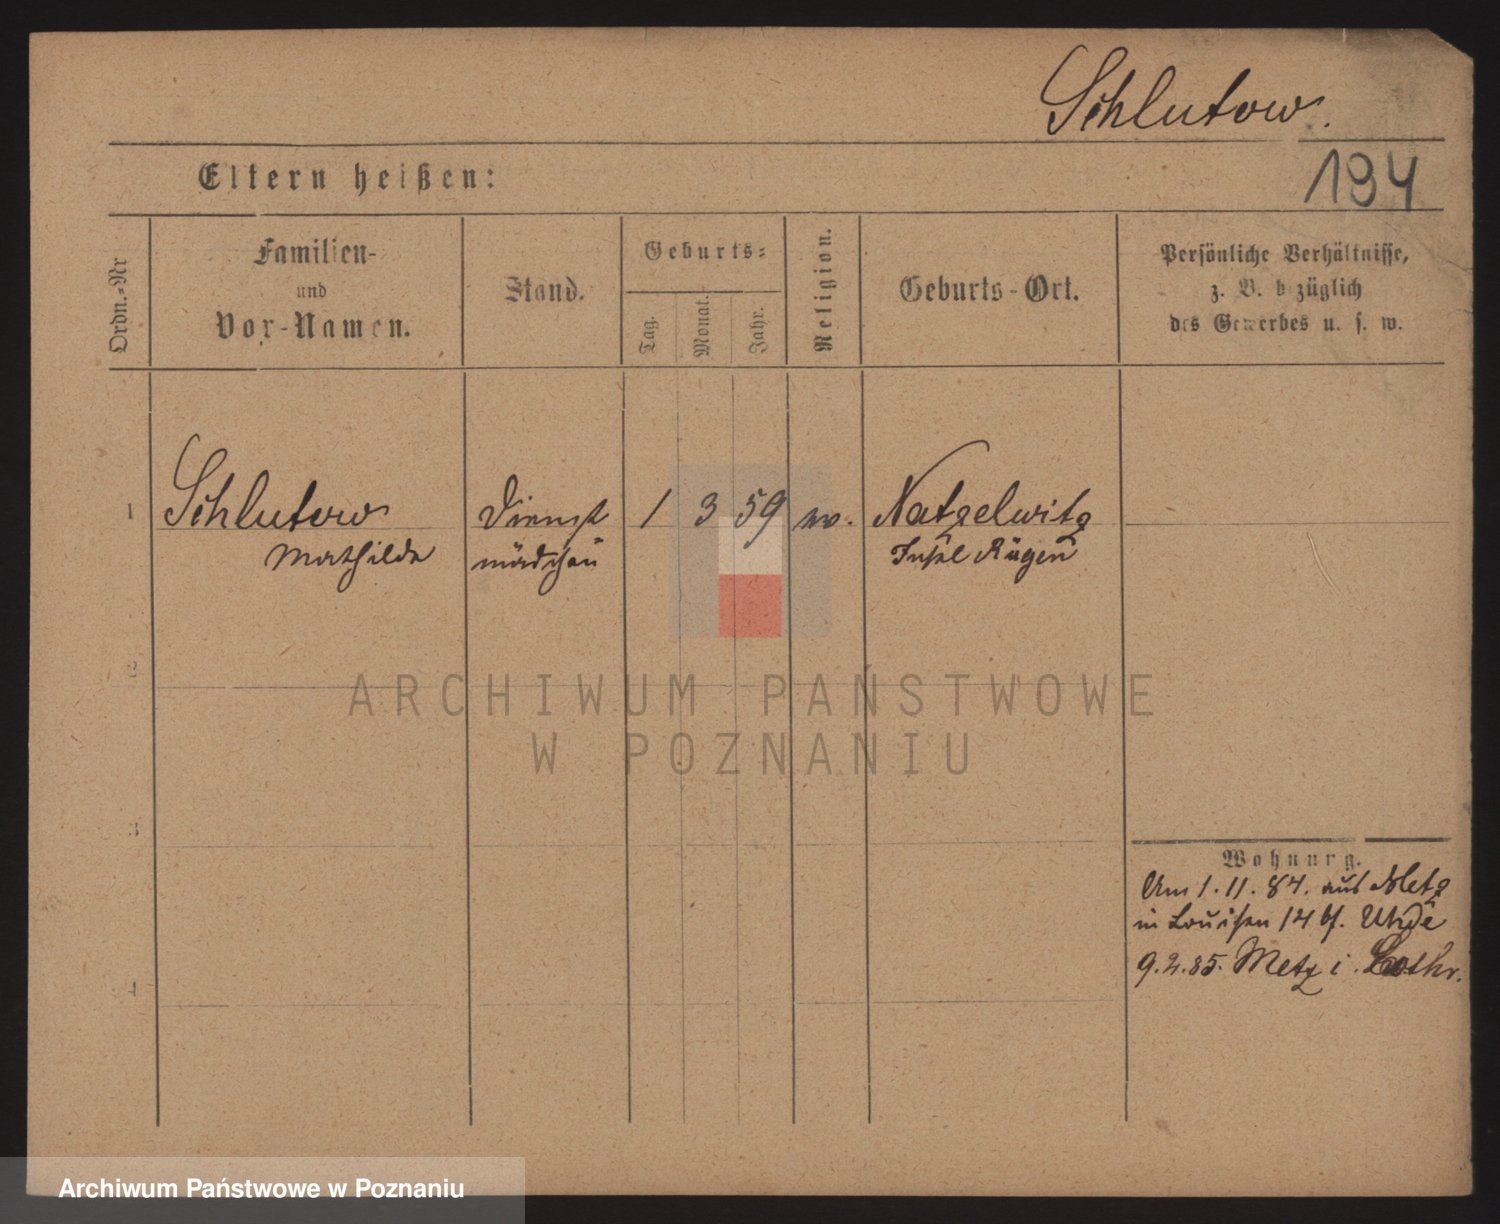 Schlutow.
194
Eltern heißen:
Ordn.-Nr
Familien-
und
Vor-Namen.
Stand.
Geburts-
Tag.
Monat.
Jahr.
Religion.
Geburts-Ort.
Persönliche Verhältnisse,
z. B. bezüglich
des Gewerbes u. s. w.
1 Schlutow Dienst 1 3 59 ev. Natzelwitz
Mathilde mädchen Insel Rügen
2
3
4
Wohnung.
Am 1. 11. 84. aus Metz
in Louisen 14 bf. Uhde
9. 2. 85. Metz i. Lothr.
ARCHIWUM PAŃSTWOWE
W POZNANIU
Archiwum Państwowe w Poznaniu